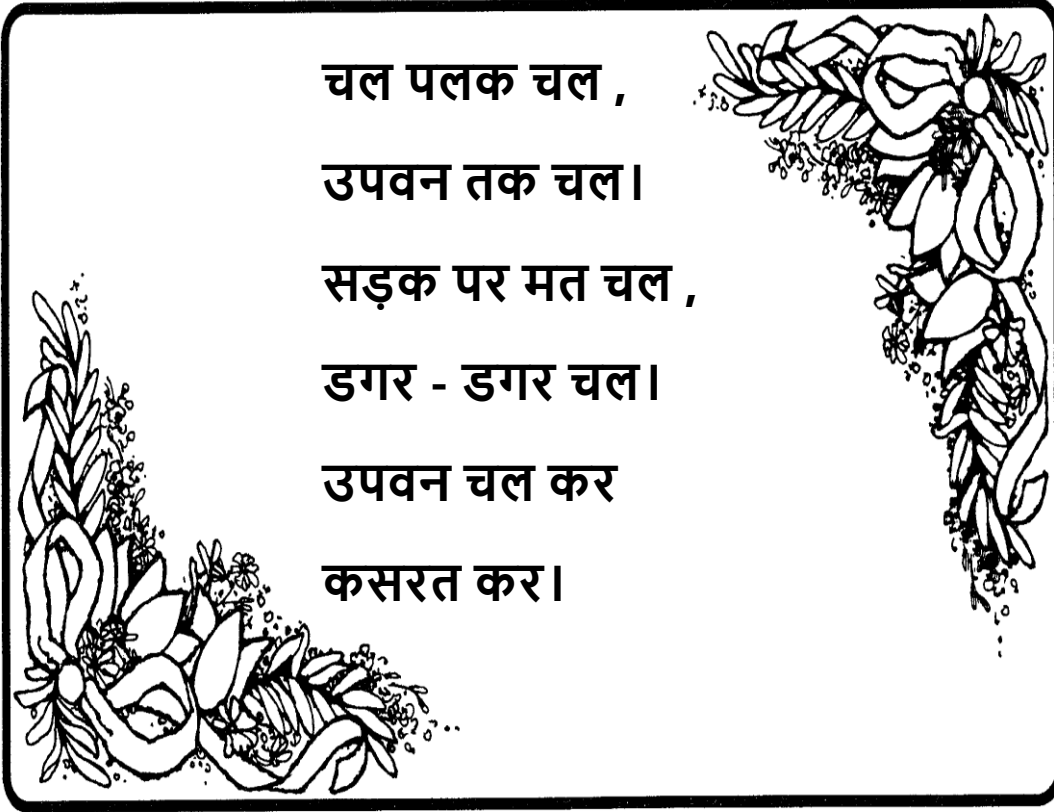 चल पलक चल ,
उपवन तक चल।
सड़क पर मत चल ,
डगर - डगर चल।
उपवन चल कर
कसरत कर।